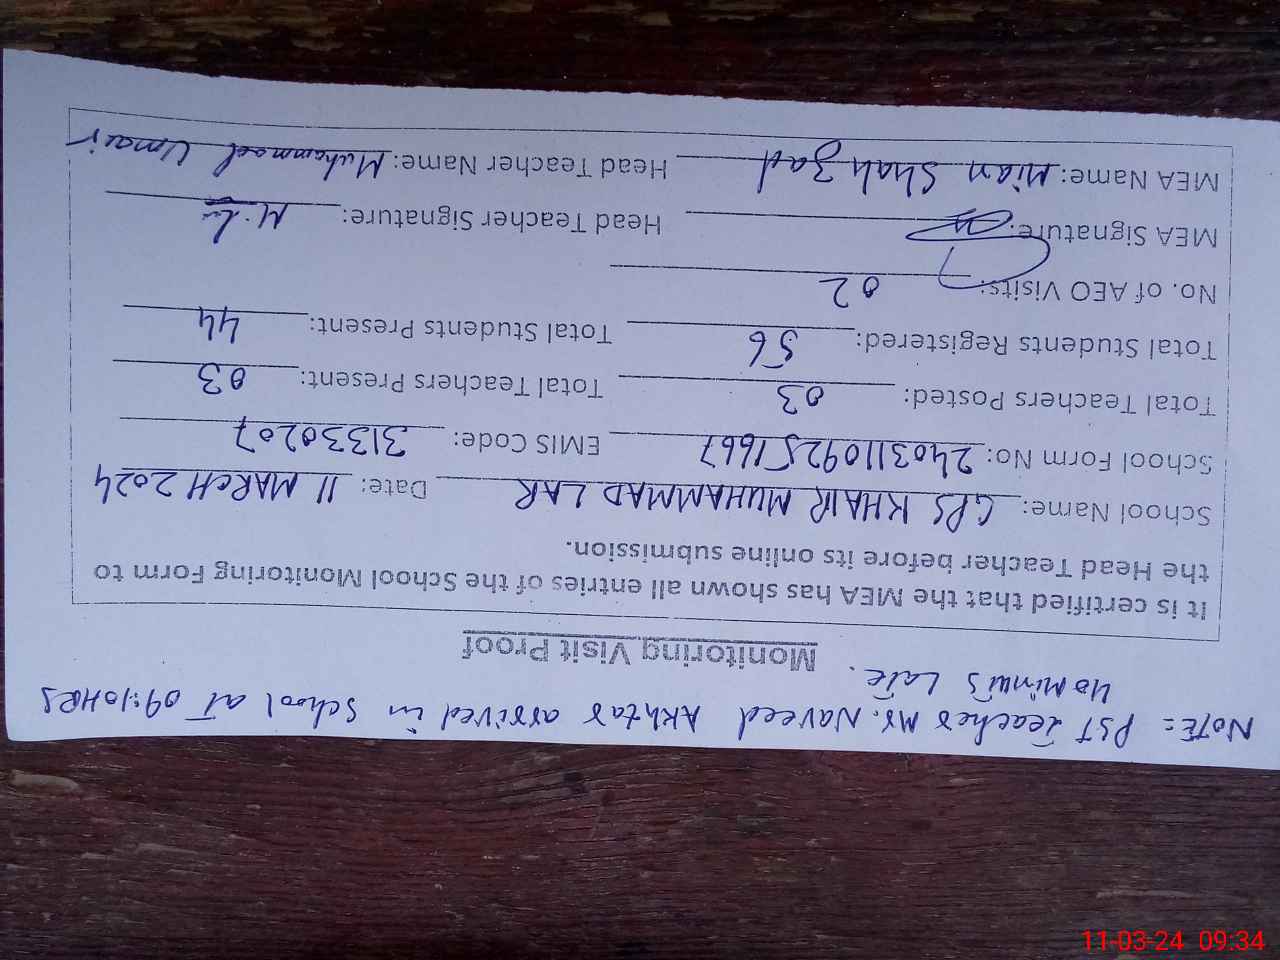 NOTE= PST Teacher Mr. Naveed Akhtar arrived in school at 09:10HRS
40 Minuts Late.
Monitoring Visit Proof
It is certified that the MEA has shown all entries of the School Monitoring Form to
the Head Teacher before its online submission.
School Name: GPS KHAIR MUHAMMAD LAR Date: 11 MARCH 2024
School Form No: 240311092251667 EMIS Code: 31330207
Total Teachers Posted: 03 Total Teachers Present: 03
Total Students Registered: 56 Total Students Present: 44
No. of AEO Visits: 02
MEA Signature: Head Teacher Signature:
MEA Name: Mian Shahzad Head Teacher Name: Muhammad Umair
11-03-24 09:34